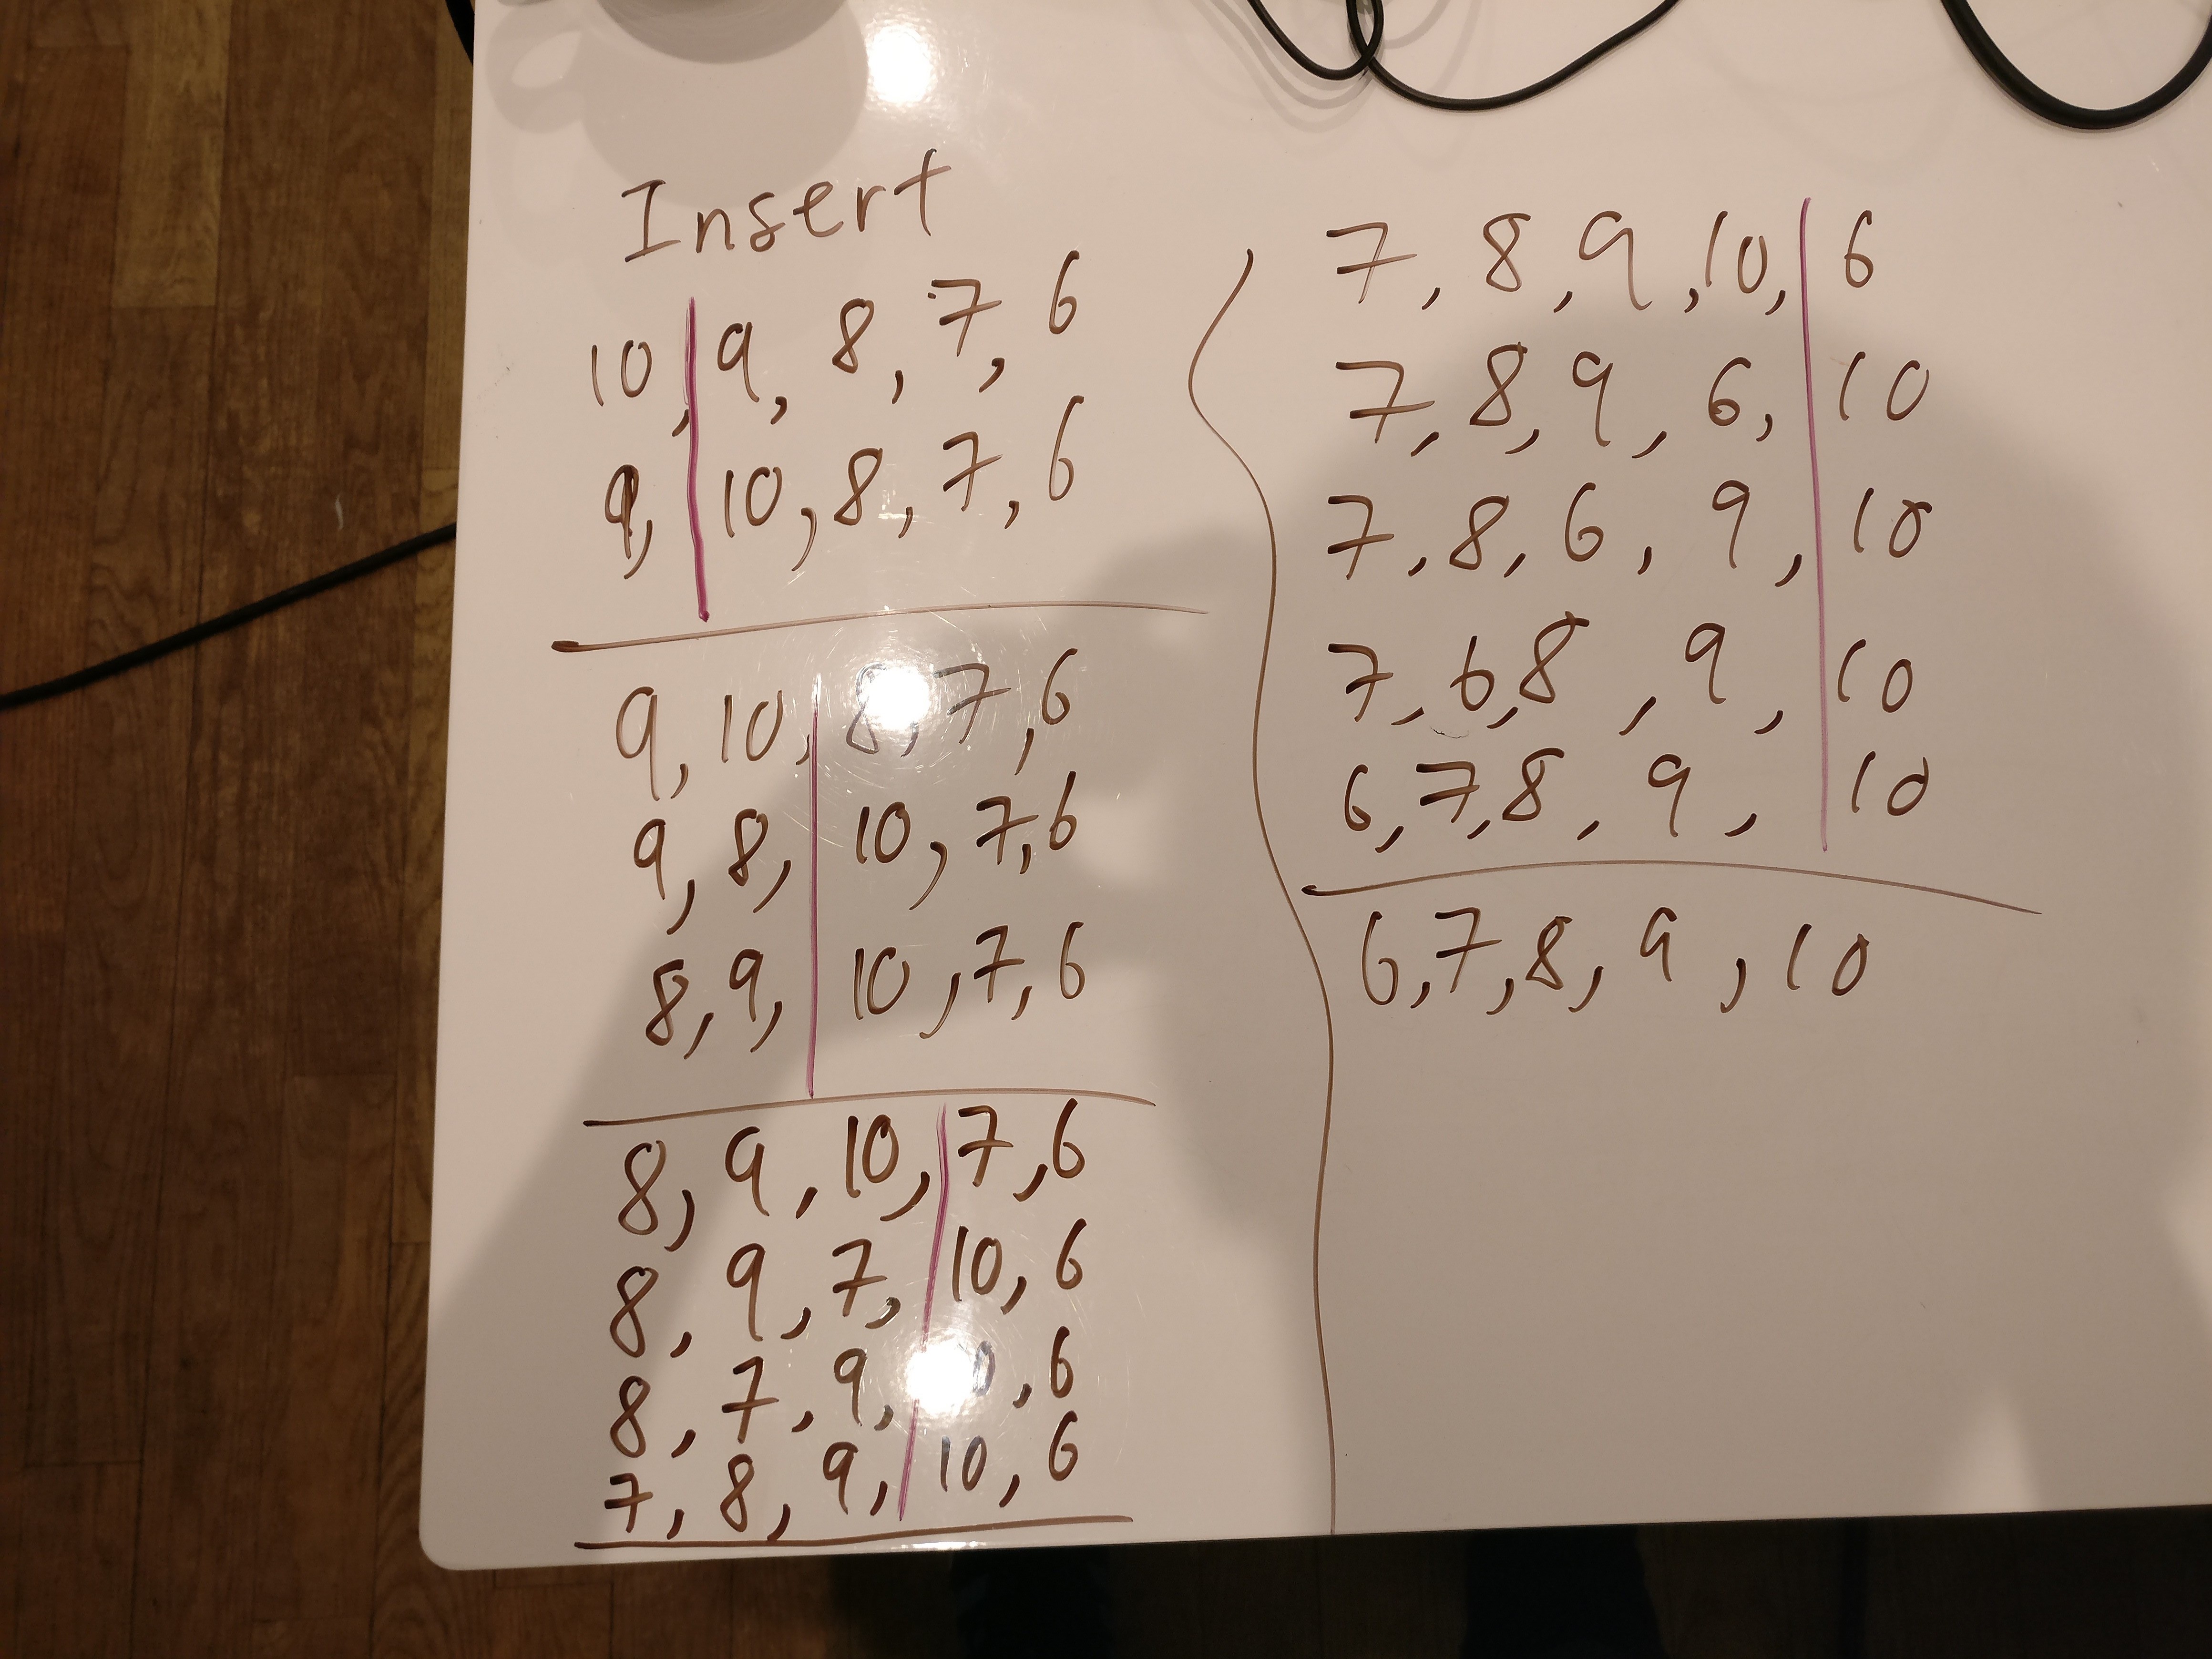 Insert
10, 9, 8, 7, 6
9, 10, 8, 7, 6
9, 10, 8, 7, 6
9, 8, 10, 7, 6
8, 9, 10, 7, 6
8, 9, 10, 7, 6
8, 9, 7, 10, 6
8, 7, 9, 0, 6
7, 8, 9, 10, 6
7, 8, 9, 10, 6
7, 8, 9, 6, 10
7, 8, 6, 9, 10
7, 6, 8, 9, 10
6, 7, 8, 9, 10
6, 7, 8, 9, 10